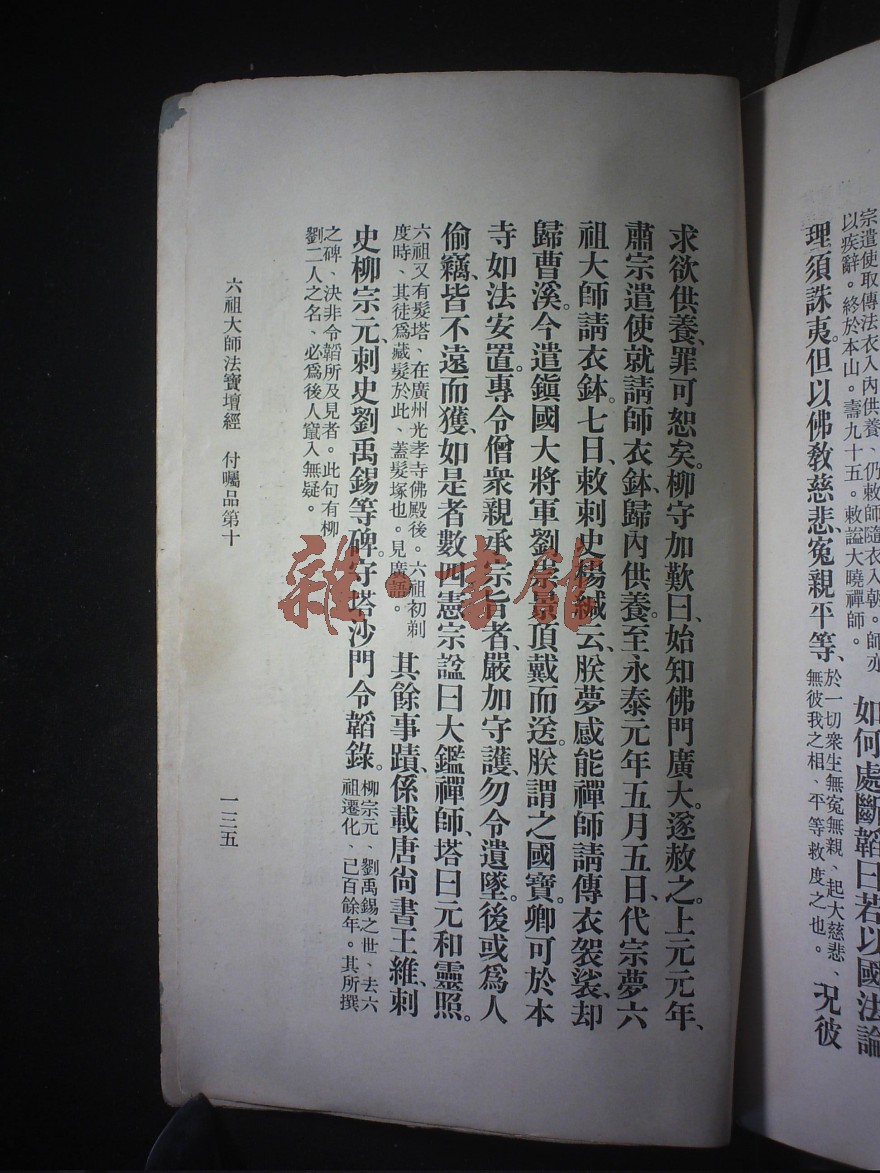 宗遣使取傳法衣入內供養、仍敕師隨衣入朝。師亦
以疾辭。終於本山。壽九十五。敕謚大曉禪師。
如何處斷韜曰若以國法論
理須誅夷。但以佛教慈悲、寃親平等、
於一切衆生無寃無親、起大慈悲、
無彼我之相、平等救度之也。
況彼
求欲供養、罪可恕矣。柳守加歎曰、始知佛門廣大。遂赦之。上元元年、
肅宗遣使就請師衣鉢、歸內供養。至永泰元年五月五日、代宗夢六
祖大師請衣鉢。七日、敕刺史楊緘云、朕夢感能禪師請傳衣袈裟、却
歸曹溪。今遣鎭國大將軍劉崇景頂戴而送。朕謂之國寶。卿可於本
寺如法安置。專令僧衆親承宗旨者、嚴加守護、勿令遺墜。後或爲人
偷竊、皆不遠而獲、如是者數四。憲宗諡曰大鑑禪師、塔曰元和靈照。
六祖又有髮塔、在廣州光孝寺佛殿後。六祖初剃
度時、其徒爲藏髮於此、蓋髮塚也。見廣語。
其餘事蹟、係載唐尚書王維、刺
史柳宗元、刺史劉禹錫等碑。守塔沙門令韜錄。
柳宗元、劉禹錫之世、去六
祖遷化、已百餘年。其所撰
之碑、決非令韜所及見者。此句有柳
劉二人之名、必爲後人竄入無疑。
六祖大師法寶壇經 付囑品第十
一三五
雜·書館